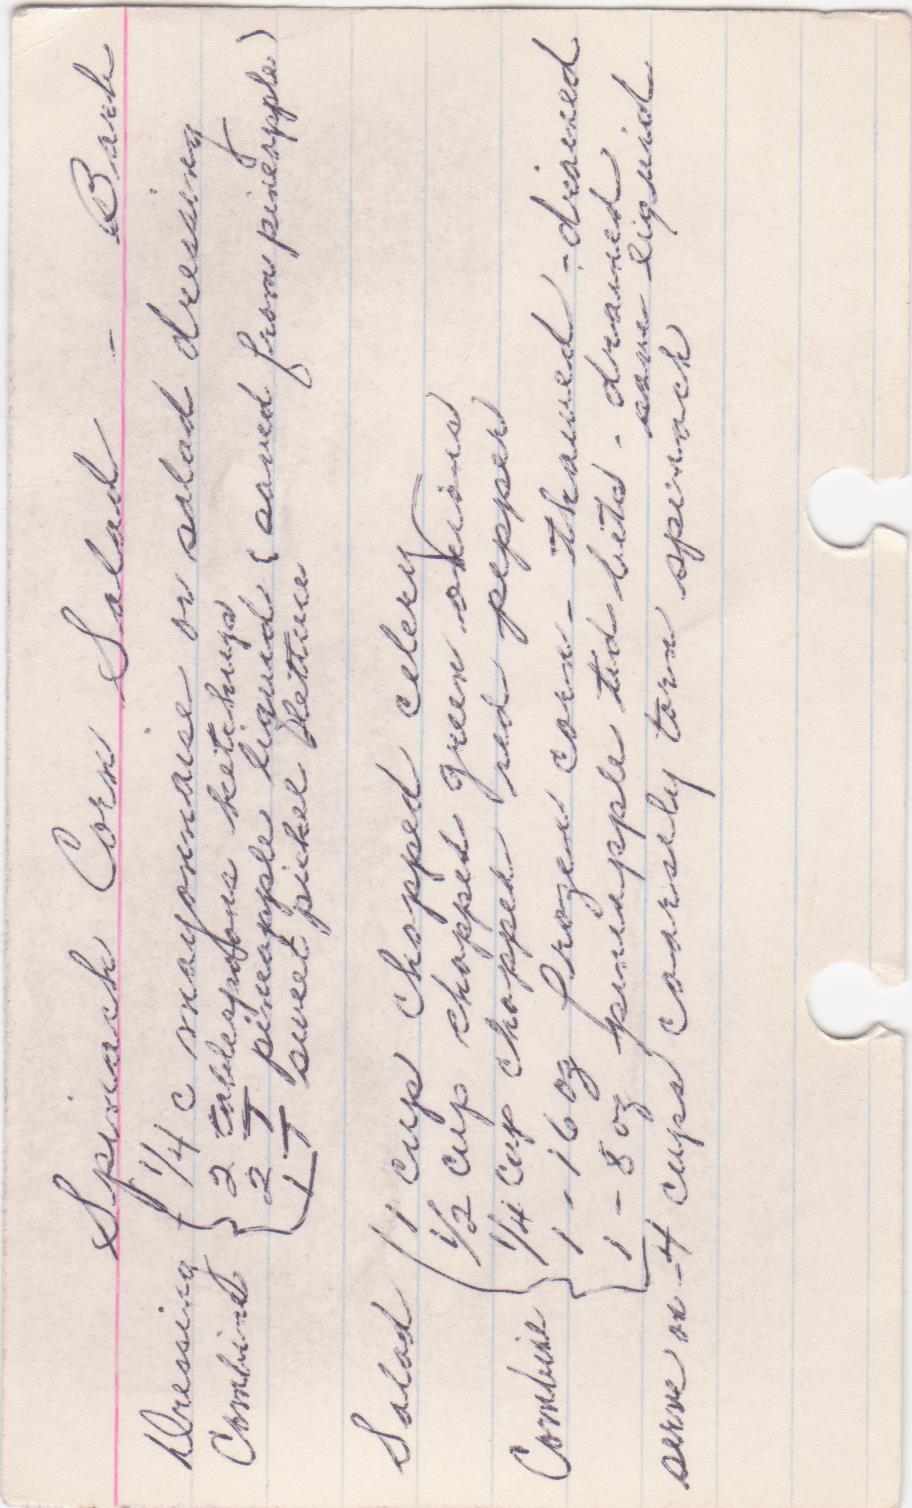 Spinach Corn Salad - Barb
Dressing 1/4 c mayonnaise or salad dressing
Combine 2 tablespoons ketchup
2 T pineapple liquid (saved from pineapple)
1 T sweet pickel
Salad 1 cup chopped celery
1/2 cup chopped green onions
1/4 cup chopped red pepper
Combine 1 - 16 oz frozen corn - thawed - drained
1 - 8 oz pineapple tid bits - drained
save liquid
serve on - 4 cups coarsely torn spinach